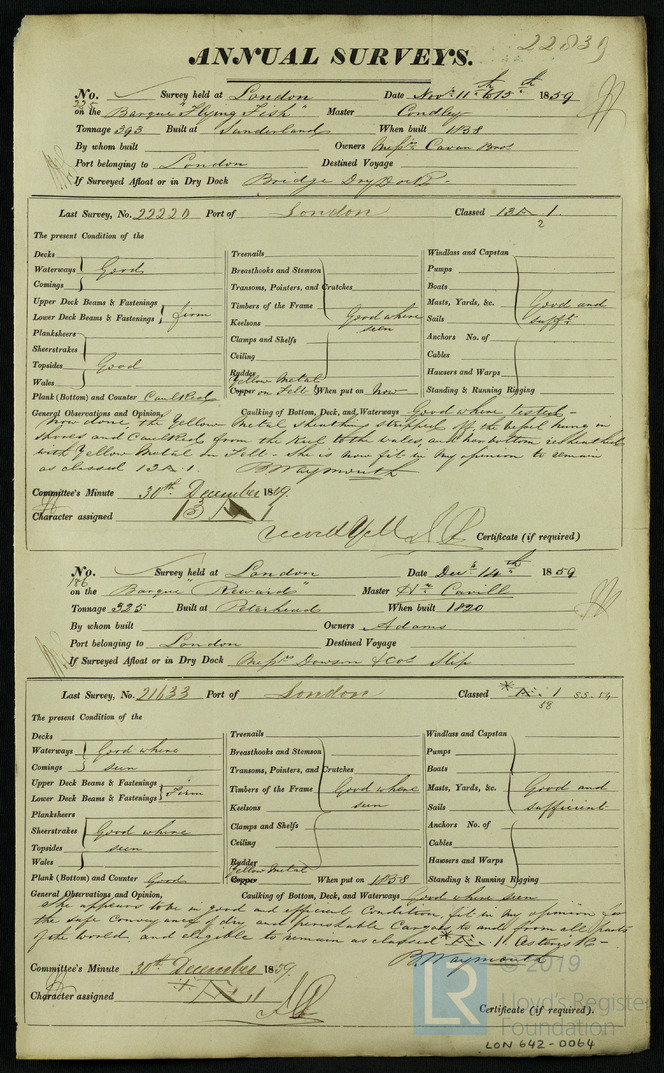 22839
ANNUAL SURVEYS.
No. Survey held at London Date Novr. 11th to 15th 1859
225
on the Barque "Flying Fish" Master Condley
Tonnage 393 Built at Sunderland When built 1838
By whom built Owners Messrs Cavan Bros
Port belonging to London Destined Voyage
If Surveyed Afloat or in Dry Dock Bridge Dry Dock -
Last Survey, No. 22220 Port of London Classed 13 A 1.
2
The present Condition of the
Decks
Waterways Good
Comings
Upper Deck Beams & Fastenings
Lower Deck Beams & Fastenings firm
Planksheers
Sheerstrakes
Topsides Good
Wales
Plank (Bottom) and Counter Caulked
Treenails
Breasthooks and Stemson
Transoms, Pointers, and Crutches
Timbers of the Frame Good where
Keelsons seen
Clamps and Shelfs
Ceiling
Rudder
Yellow Metal
Copper on Felt When put on Now
Windlass and Capstan
Pumps
Boats
Masts, Yards, &c. Good and
Sails sufft.
Anchors No. of
Cables
Hawsers and Warps
Standing & Running Rigging
General Observations and Opinion, Caulking of Bottom, Deck, and Waterways Good where tested -
Now done, the Yellow Metal sheathing stripped off, the vessel hung in
shores and Caulked from the Keel to the wales, and her bottom resheathed
with Yellow Metal on Felt - She is now fit in my opinion to remain
as classed 13 A 1. B Waymouth
Committee's Minute 30th December 1859.
Character assigned 13 A 1
Certificate (if required)
No. Survey held at London Date Decr. 14th 1859
186
on the Barque "Reward" Master Hy. Cavill
Tonnage 325 Built at Peterhead When built 1820
By whom built Owners Adams
Port belonging to London Destined Voyage
If Surveyed Afloat or in Dry Dock Messrs Dowson & Cos Slip
Last Survey, No. 21633 Port of London Classed * Æ. 1 55.54
58
The present Condition of the
Decks
Waterways Good where
Comings seen
Upper Deck Beams & Fastenings
Lower Deck Beams & Fastenings Firm
Planksheers
Sheerstrakes Good where
Topsides seen
Wales
Plank (Bottom) and Counter Good
Treenails
Breasthooks and Stemson
Transoms, Pointers, and Crutches
Timbers of the Frame Good where
Keelsons seen
Clamps and Shelfs
Ceiling
Rudder
Yellow Metal
Copper When put on 1858
Windlass and Capstan
Pumps
Boats
Masts, Yards, &c. Good and
Sails sufficient
Anchors No. of
Cables
Hawsers and Warps
Standing & Running Rigging
General Observations and Opinion, Caulking of Bottom, Deck, and Waterways Good where seen
She appears to be in good and efficient Condition, fit in my opinion for
the safe Conveyance of dry and perishable Cargoes to and from all parts
of the world, and eligible to remain as classed * Æ. 1.
B. Waymouth
Committee's Minute 30th December 1859.
Character assigned * Æ 1
Certificate (if required).
© 2019
LR
Lloyd's Register
Foundation
LON 642-0064